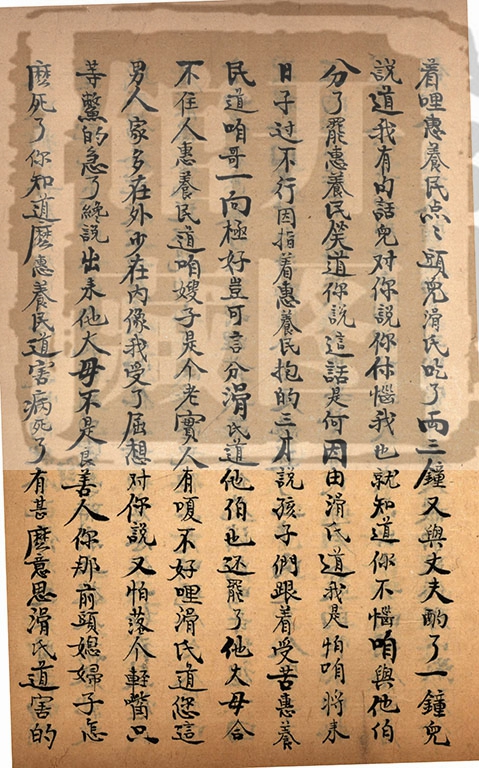 着哩惠養民点〻頭兒滑氏吃了两三鐘又與丈夫酌了一鐘兒
說道我有句話兒对你說你休惱我也就知道你不惱咱與他伯
分了罷惠養民笑道你說這話是何因由滑氏道我是怕咱将来
日子过不行因指着惠養民抱的三才說孩子們跟着受苦惠養
民道咱哥一向極好豈可言分滑氏道他伯也还罷了他大母合
不住人惠養民道咱嫂子是个老實人有嗄不好哩滑氏道您這
男人家多在外少在内像我受了屈想对你說又怕落个輕嘴只
等鱉的急了纔說出来他大母不是良善人你那前頭媳婦子怎
麽死了你知道麽惠養民道害病死了有甚麽意思滑氏道害的